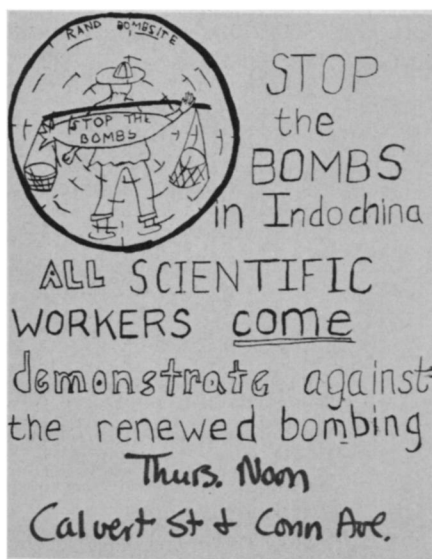 RAND BOMBSITE
STOP THE
BOMBS
STOP
the
BOMBS
in Indochina
ALL SCIENTIFIC
WORKERS come
demonstrate against
the renewed bombing
Thurs. Noon
Calvert St & Conn Ave.